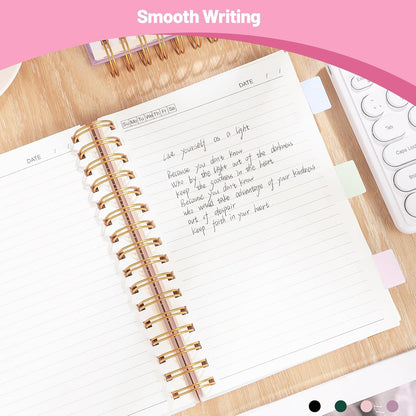 Smooth Writing
DATE / /
Su Mo Tu We Th Fr Sa
DATE / /
Live yourself as a light
Because you don't know
Who by the light out of the darkness
Keep the goodness in the heart
Because you don't know
who would take advantage of your kindness
out of despair
keep faith in your heart
Caps Lock